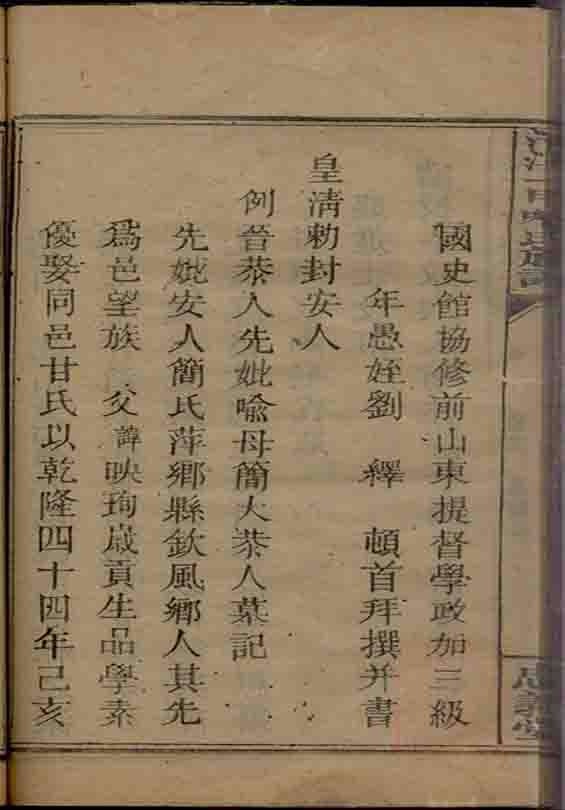 國史館協修前山東提督學政加三級
年愚姪劉 繹 頓首拜撰并書
皇清勅封安人
例晉恭人先妣喻母簡太恭人墓記
先妣安人簡氏萍鄉縣欽風鄉人其先
爲邑望族 父諱映珣歲貢生品學素
優娶同邑甘氏以乾隆四十四年己亥